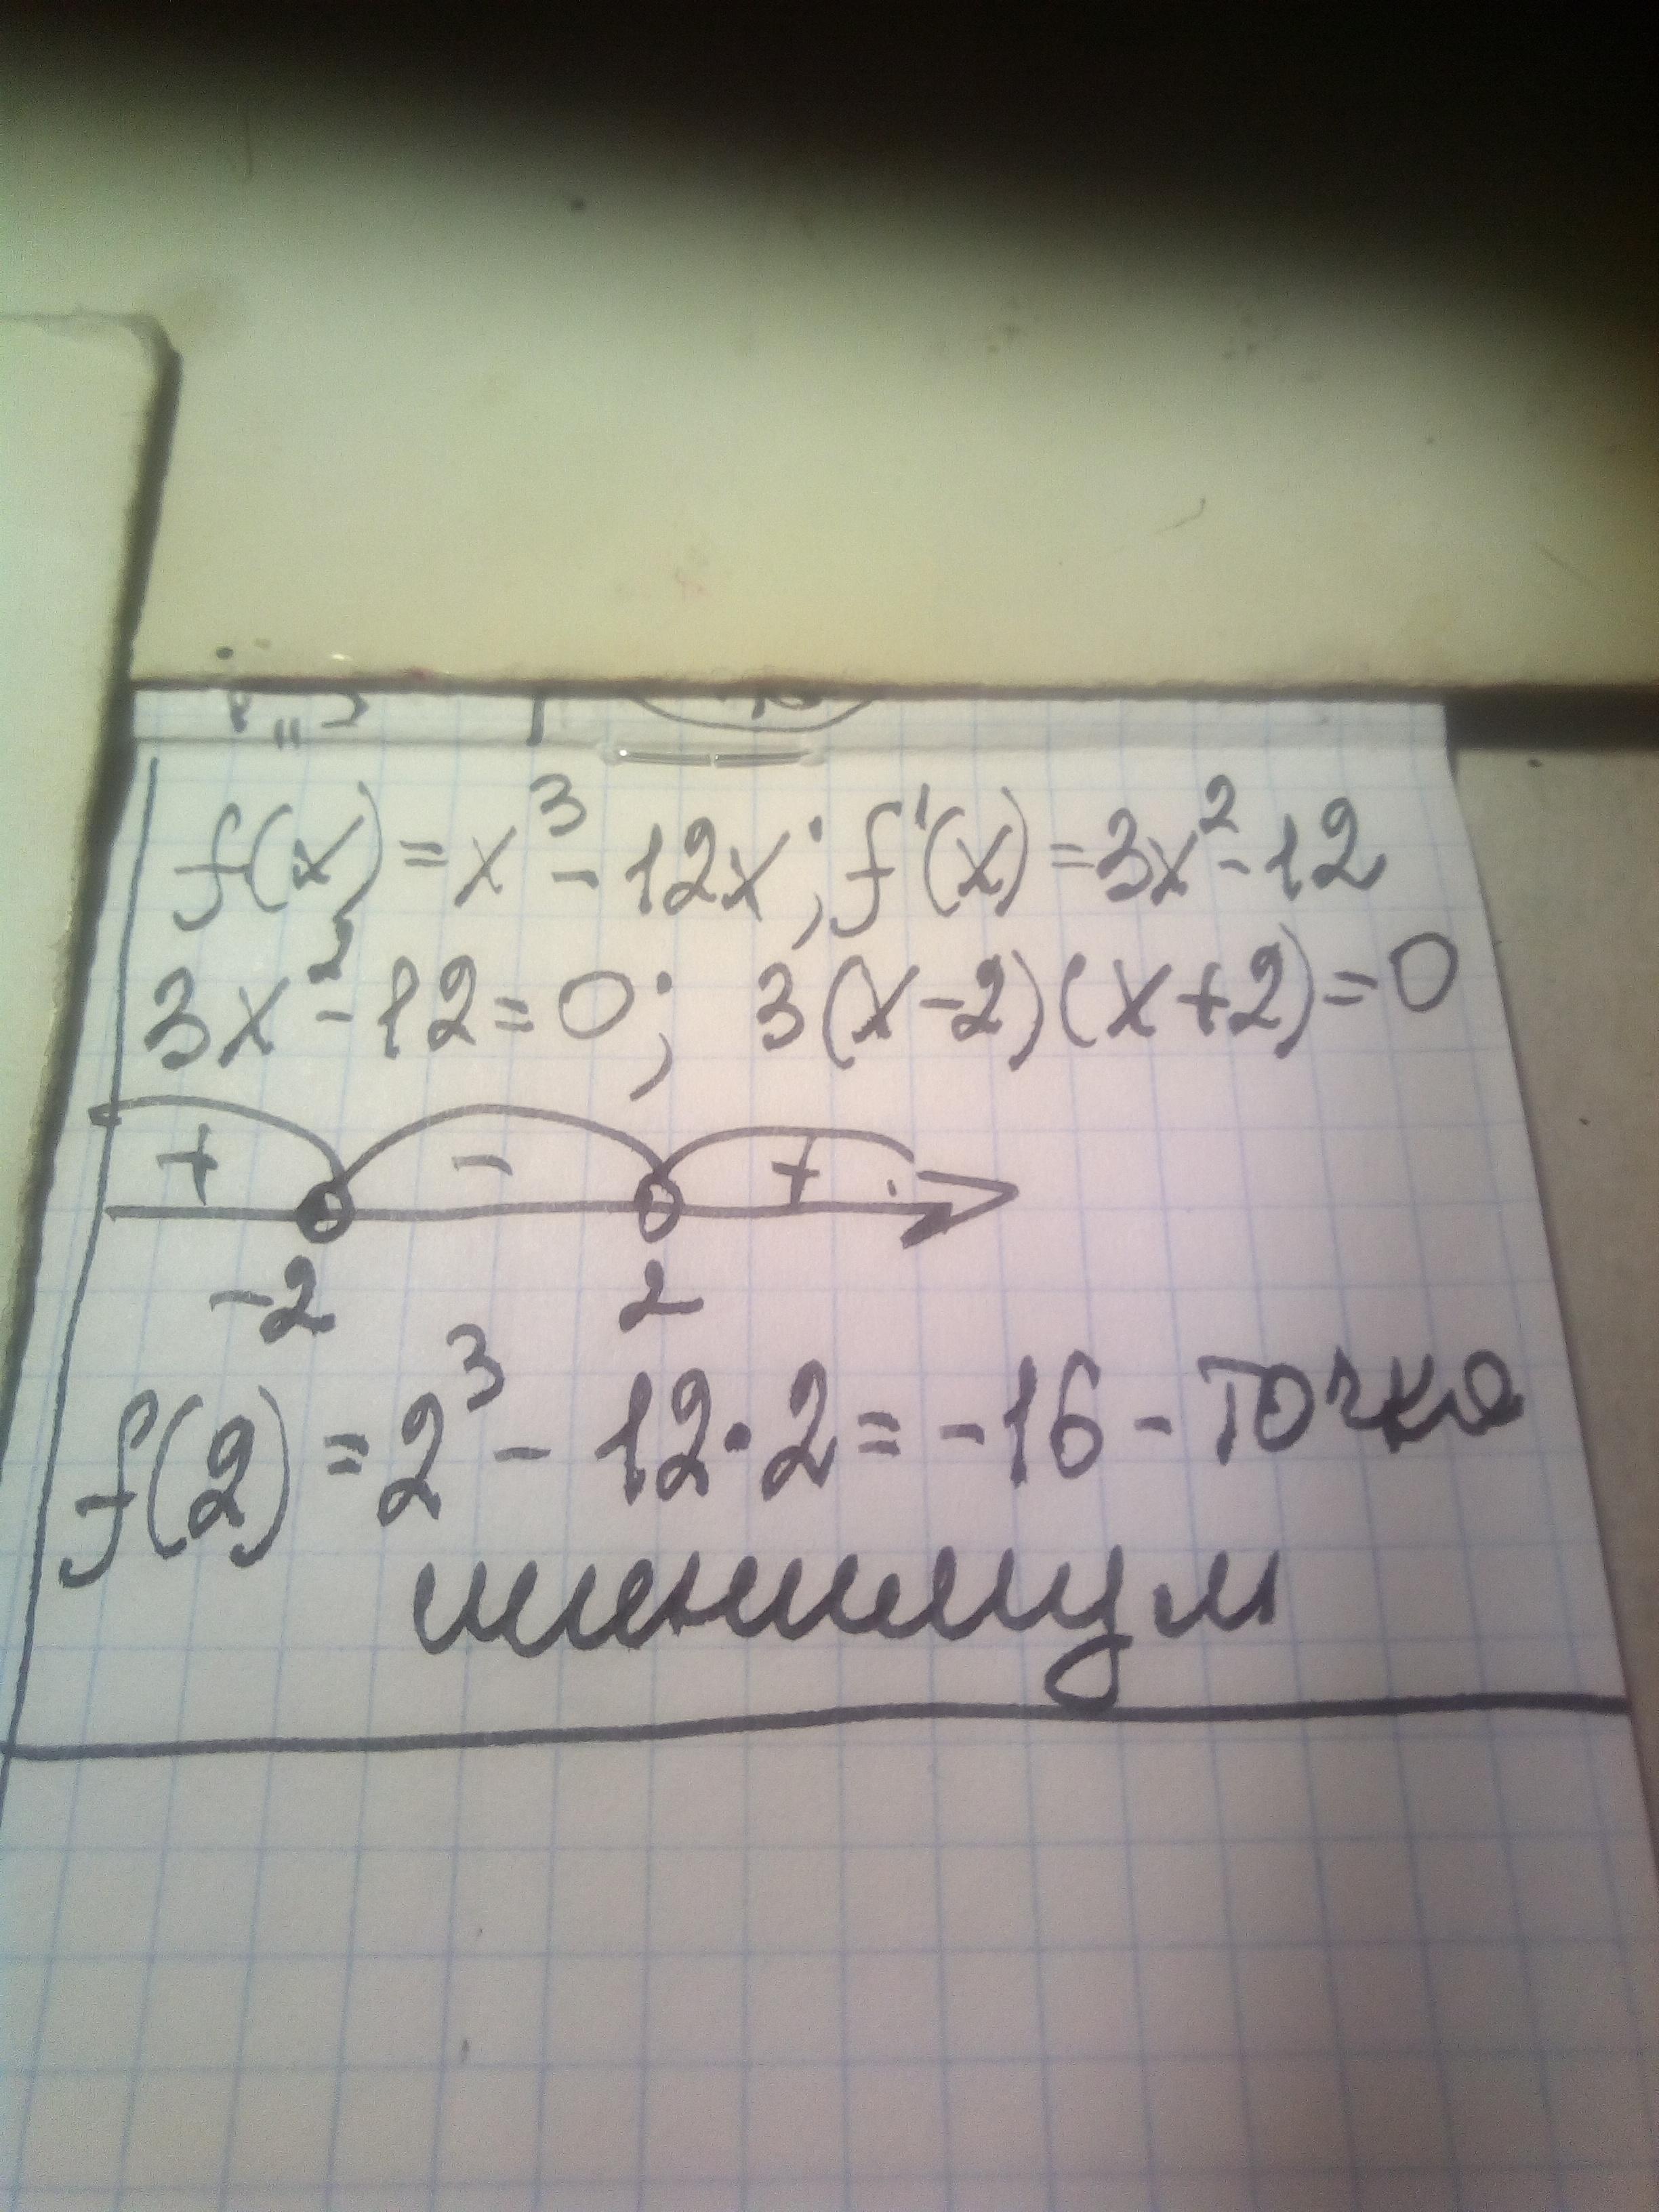 f(x) = x³ - 12x; f'(x) = 3x² - 12
3x² - 12 = 0; 3(x-2)(x+2) = 0
+ - +
-2 2
f(2) = 2³ - 12·2 = -16 - точка
минимум